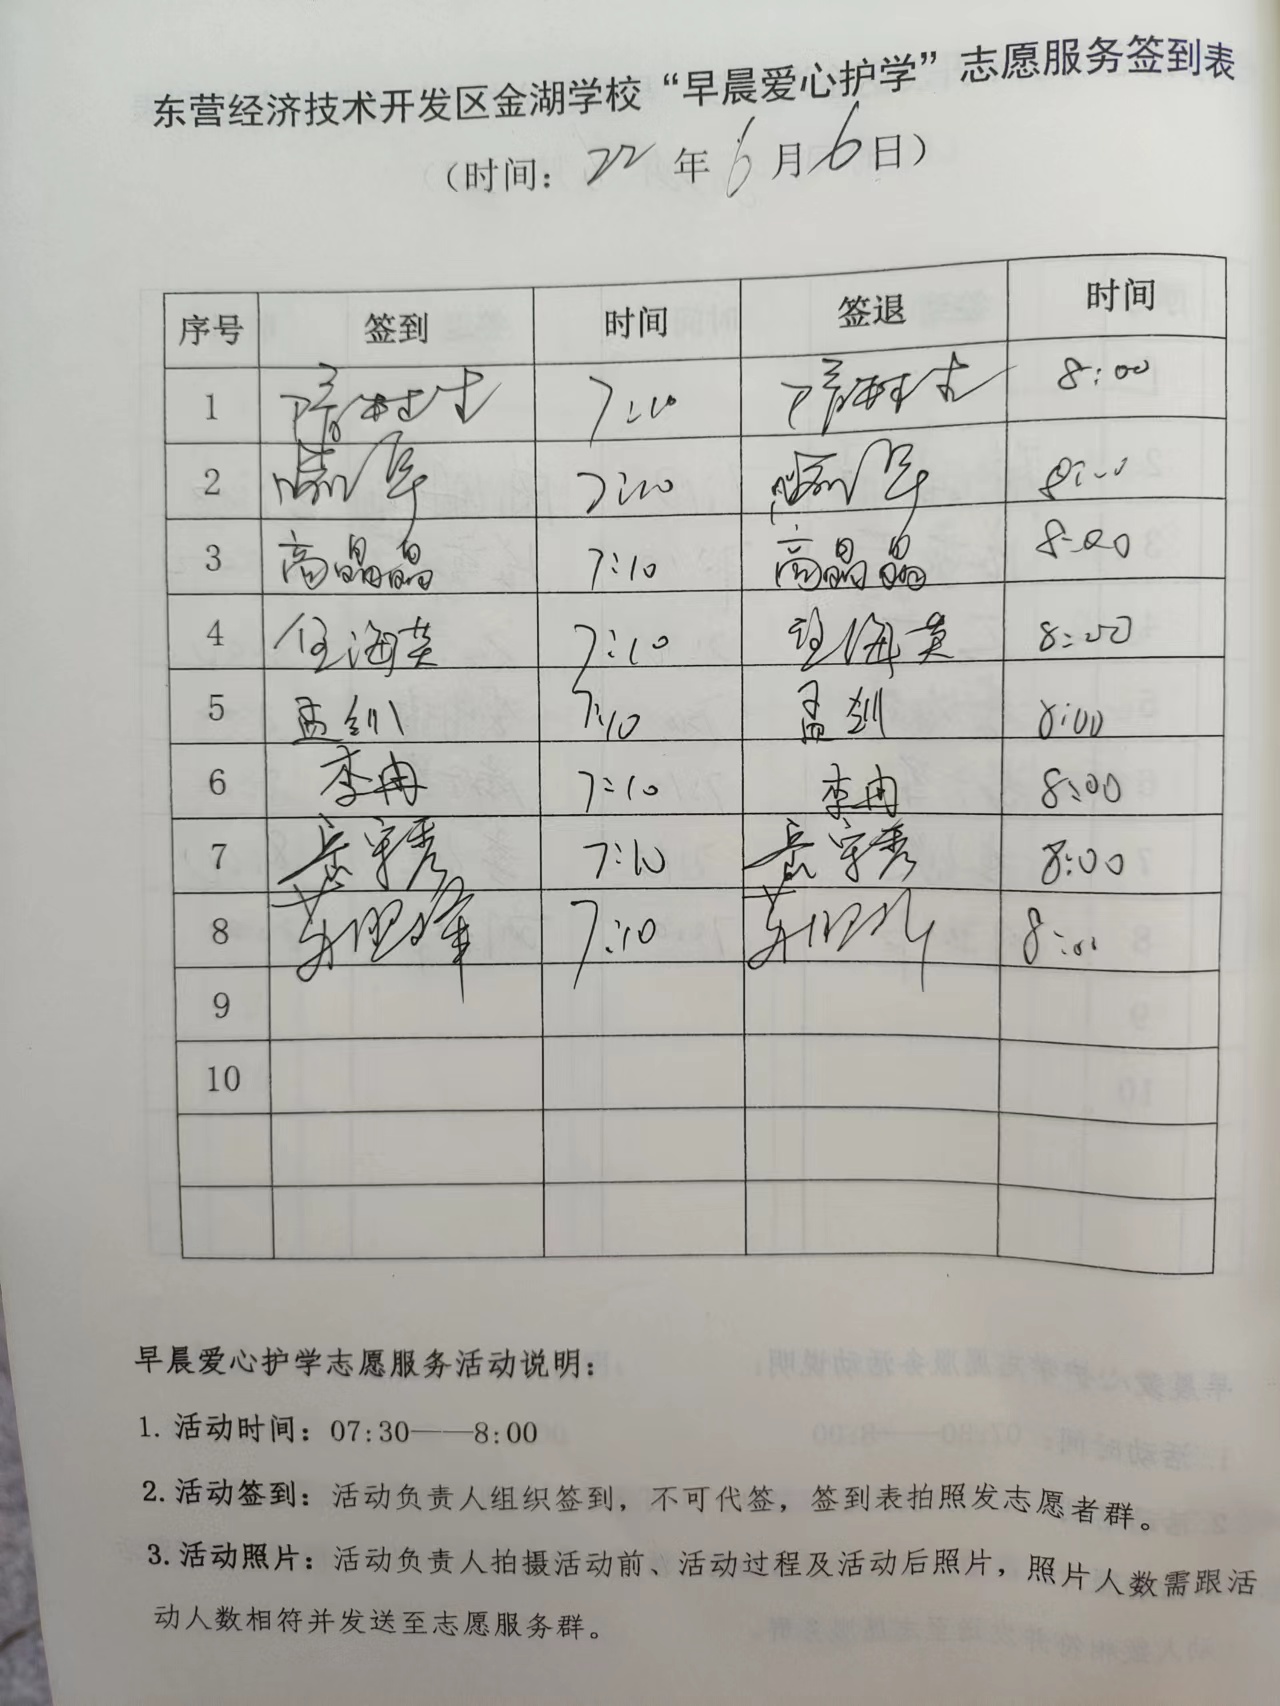 东营经济技术开发区金湖学校“早晨爱心护学”志愿服务签到表
（时间：22年6月6日）
序号 签到 时间 签退 时间
1 7:10 8:00
2 7:10 8:00
3 高晶晶 7:10 高晶晶 8:00
4 任海英 7:10 任海英 8:00
5 孟钏 7:10 孟钏 8:00
6 李冉 7:10 李冉 8:00
7 岳守秀 7:10 岳守秀 8:00
8 7:10 8:00
9
10
早晨爱心护学志愿服务活动说明：
1. 活动时间：07:30——8:00
2. 活动签到：活动负责人组织签到，不可代签，签到表拍照发志愿者群。
3. 活动照片：活动负责人拍摄活动前、活动过程及活动后照片，照片人数需跟活
动人数相符并发送至志愿服务群。